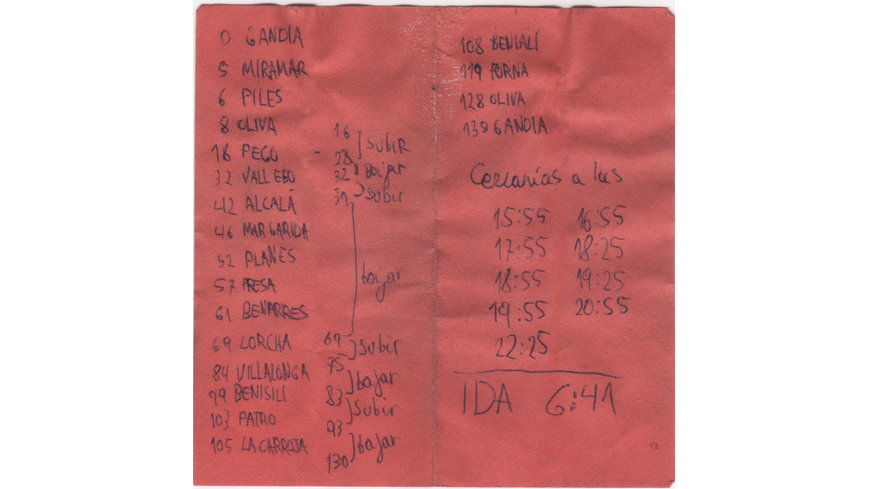 0 GANDIA
5 MIRAMAR
6 PILES
8 OLIVA
18 PEGO
32 VALL EBO
42 ALCALÁ
46 MARGARIDA
52 PLANES
57 PRESA
61 BENIARRES
69 LORCHA
84 VILLALONGA
99 BENISILI
103 PATRO
105 LA CARROJA
16
SUBIR
28
Bajar
32
Subir
bajar
69
Subir
75
bajar
83
Subir
93
bajar
130
108 BENIALÍ
119 FORNA
128 OLIVA
139 GANDIA
Cercanías a las
15:55 16:55
17:55 18:25
18:55 19:25
19:55 20:55
22:25
IDA 6:41